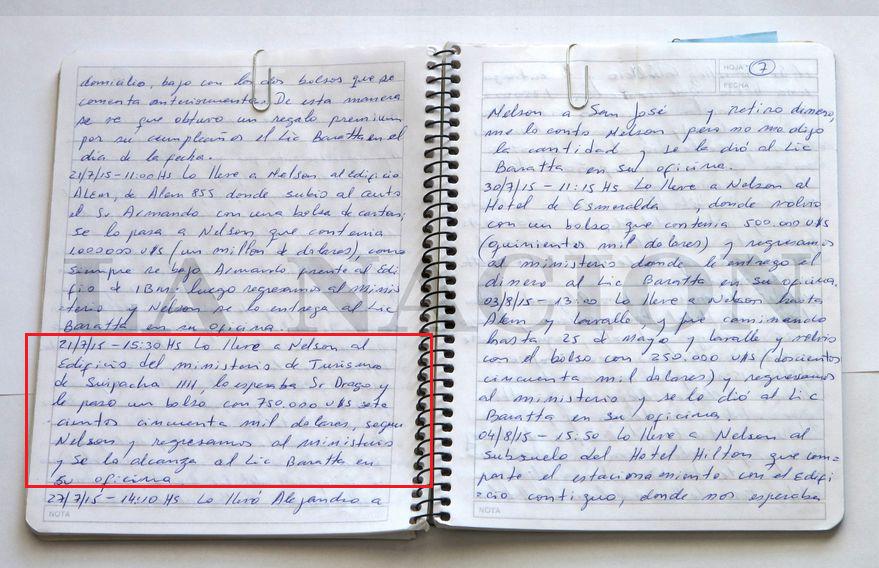 domicilio, bajo con los dos bolsos que se
comenta anteriormente. De esta manera
se ve que obtuvo un regalo premium
por su cumpleaños el Lic Baratta en el
dia de la fecha.
21/7/15-11:00 Hs Lo lleve a Nelson al edificio
ALEM, de Alem 855 donde subio al auto
el Sr Armando con una bolsa de carton,
se lo pasa a Nelson que contenia
1.000.000 U$S (un millon de dolares), como
siempre se bajo Armando frente al Edi
ficio de IBM: luego regresamos al minis
terio y Nelson se lo entrega al Lic
Baratta en su oficina.
21/7/15-15:30 Hs Lo lleve a Nelson al
Edificio del ministerio de Turismo
de Suipacha 1111, lo esperaba Sr Drago y
le paso un bolso con 750.000 U$S sete
cientos cincuenta mil dolares, segun
Nelson y regresamos al ministerio
y se lo alcanza al Lic Baratta en
su oficina.
27/7/15-14:10 Hs Lo llevó Alejandro a
NOTA
HOJA Nº 7
FECHA
Nelson a San José y retiro dinero,
me lo conto Nelson pero no me dijo
la cantidad y se la dió al Lic
Baratta en su oficina.
30/7/15-11:15 Hs Lo lleve a Nelson al
Hotel de Esmeralda, donde volvio
con un bolso que contenia 500.000 U$S
(quinientos mil dolares) y regresamos
al ministerio donde le entrego el
dinero al Lic Baratta en su oficina.
03/8/15-13:20 Hs Lo lleve a Nelson hasta
Alem y Lavalle, y fue caminando
hasta 25 de Mayo y Lavalle y volvio
con el bolso con 250.000 U$S (doscientos
cincuenta mil dolares) y regresamos
al ministerio y se lo dió al Lic
Baratta en su oficina,
04/8/15-15:50 Lo lleve a Nelson al
subsuelo del Hotel Hilton que com-
parte el estacionamiento con el Edifi
cio contiguo, donde nos esperaba
NOTA
LA NACION